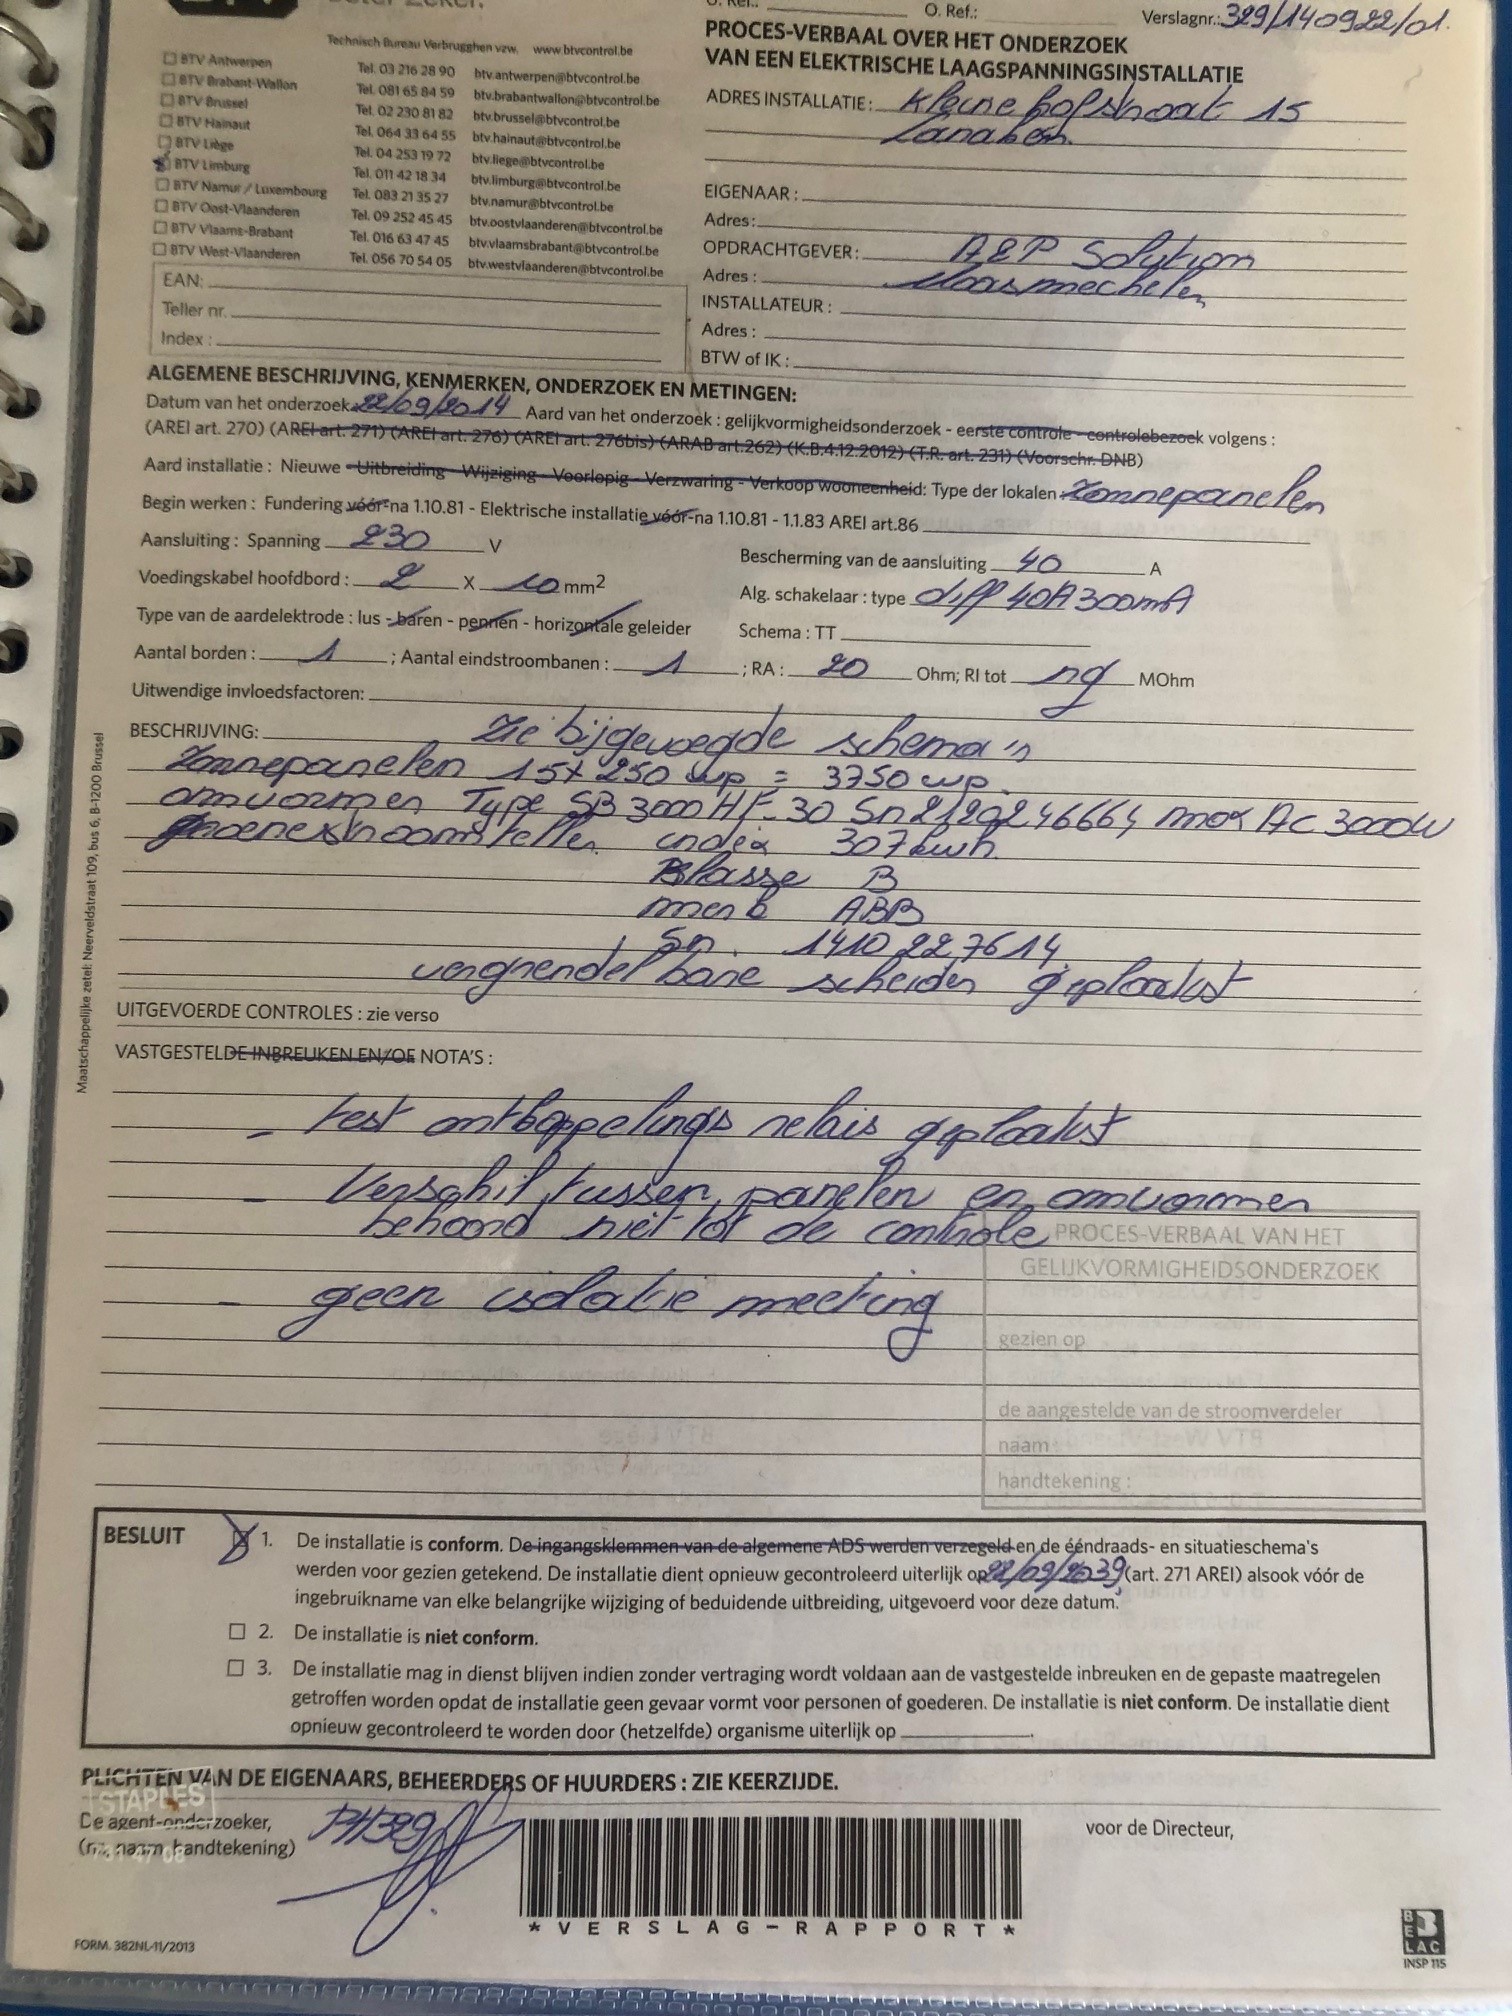 O. Ref.: Verslagnr.: 329/140922/01.
PROCES-VERBAAL OVER HET ONDERZOEK
VAN EEN ELEKTRISCHE LAAGSPANNINGSINSTALLATIE
Technisch Bureau Verbrugghen vzw. www.btvcontrol.be
BTV Antwerpen Tel. 03 216 28 90 btv.antwerpen@btvcontrol.be
BTV Brabant-Wallon Tel. 081 65 84 59 btv.brabantwallon@btvcontrol.be
BTV Brussel Tel. 02 230 81 82 btv.brussel@btvcontrol.be
BTV Hainaut Tel. 064 33 64 55 btv.hainaut@btvcontrol.be
BTV Liège Tel. 04 253 19 72 btv.liege@btvcontrol.be
BTV Limburg Tel. 011 42 18 34 btv.limburg@btvcontrol.be
BTV Namur / Luxembourg Tel. 083 21 35 27 btv.namur@btvcontrol.be
BTV Oost-Vlaanderen Tel. 09 252 45 45 btv.oostvlaanderen@btvcontrol.be
BTV Vlaams-Brabant Tel. 016 63 47 45 btv.vlaamsbrabant@btvcontrol.be
BTV West-Vlaanderen Tel. 056 70 54 05 btv.westvlaanderen@btvcontrol.be
EAN:
Teller nr.
Index :
ADRES INSTALLATIE: Kleine hofstraat 15
Lanaken
EIGENAAR :
Adres:
OPDRACHTGEVER: A&P Solution
Adres : Maasmechelen
INSTALLATEUR :
Adres :
BTW of IK :
ALGEMENE BESCHRIJVING, KENMERKEN, ONDERZOEK EN METINGEN:
Datum van het onderzoek 22/09/2014 Aard van het onderzoek : gelijkvormigheidsonderzoek - eerste controle - controlebezoek volgens :
(AREI art. 270) (AREI art. 271) (AREI art. 276) (AREI art. 276bis) (ARAB art.262) (K.B.4.12.2012) (T.R. art. 231) (Voorschr. DNB)
Aard installatie : Nieuwe - Uitbreiding - Wijziging - Voorlopig - Verzwaring - Verkoop wooneenheid: Type der lokalen zonnepanelen
Begin werken : Fundering vóór-na 1.10.81 - Elektrische installatie vóór-na 1.10.81 - 1.1.83 AREI art.86
Aansluiting : Spanning 230 V Bescherming van de aansluiting 40 A
Voedingskabel hoofdbord : 2 X 10 mm2 Alg. schakelaar : type diff 40A 300mA
Type van de aardelektrode : lus - baren - pennen - horizontale geleider Schema : TT
Aantal borden : 1 ; Aantal eindstroombanen : 1 ; RA : 20 Ohm; RI tot ng MOhm
Uitwendige invloedsfactoren:
BESCHRIJVING: Zie bijgevoegde schema's
Zonnepanelen 15x 250 wp = 3750 wp.
omvormer Type SB 3000 HF-30 Sn 2129246664 max AC 3000W
groenestroomteller index 307 kwh.
Klasse B
merk ABB
Sn. 1410 227614.
vergrendelbare scheider geplaatst
UITGEVOERDE CONTROLES : zie verso
VASTGESTELDE INBREUKEN EN/OF NOTA'S :
- test ontkoppelings relais geplaatst
- Verschil tussen panelen en omvormer
behoord niet tot de controle
- geen isolatie meeting
PROCES-VERBAAL VAN HET
GELIJKVORMIGHEIDSONDERZOEK
gezien op
de aangestelde van de stroomverdeler
naam
handtekening :
Maatschappelijke zetel: Neerveldstraat 109, bus 6, B-1200 Brussel
BESLUIT 1. De installatie is conform. De ingangsklemmen van de algemene ADS werden verzegeld en de ééndraads- en situatieschema's
werden voor gezien getekend. De installatie dient opnieuw gecontroleerd uiterlijk op 22/09/2039 (art. 271 AREI) alsook vóór de
ingebruikname van elke belangrijke wijziging of beduidende uitbreiding, uitgevoerd voor deze datum.
2. De installatie is niet conform.
3. De installatie mag in dienst blijven indien zonder vertraging wordt voldaan aan de vastgestelde inbreuken en de gepaste maatregelen
getroffen worden opdat de installatie geen gevaar vormt voor personen of goederen. De installatie is niet conform. De installatie dient
opnieuw gecontroleerd te worden door (hetzelfde) organisme uiterlijk op
PLICHTEN VAN DE EIGENAARS, BEHEERDERS OF HUURDERS : ZIE KEERZIJDE.
STAPLES
De agent-onderzoeker,
(nr, naam, handtekening) PH329
voor de Directeur,
*VERSLAG-RAPPORT*
FORM. 382NL-11/2013
BELAC
INSP 115